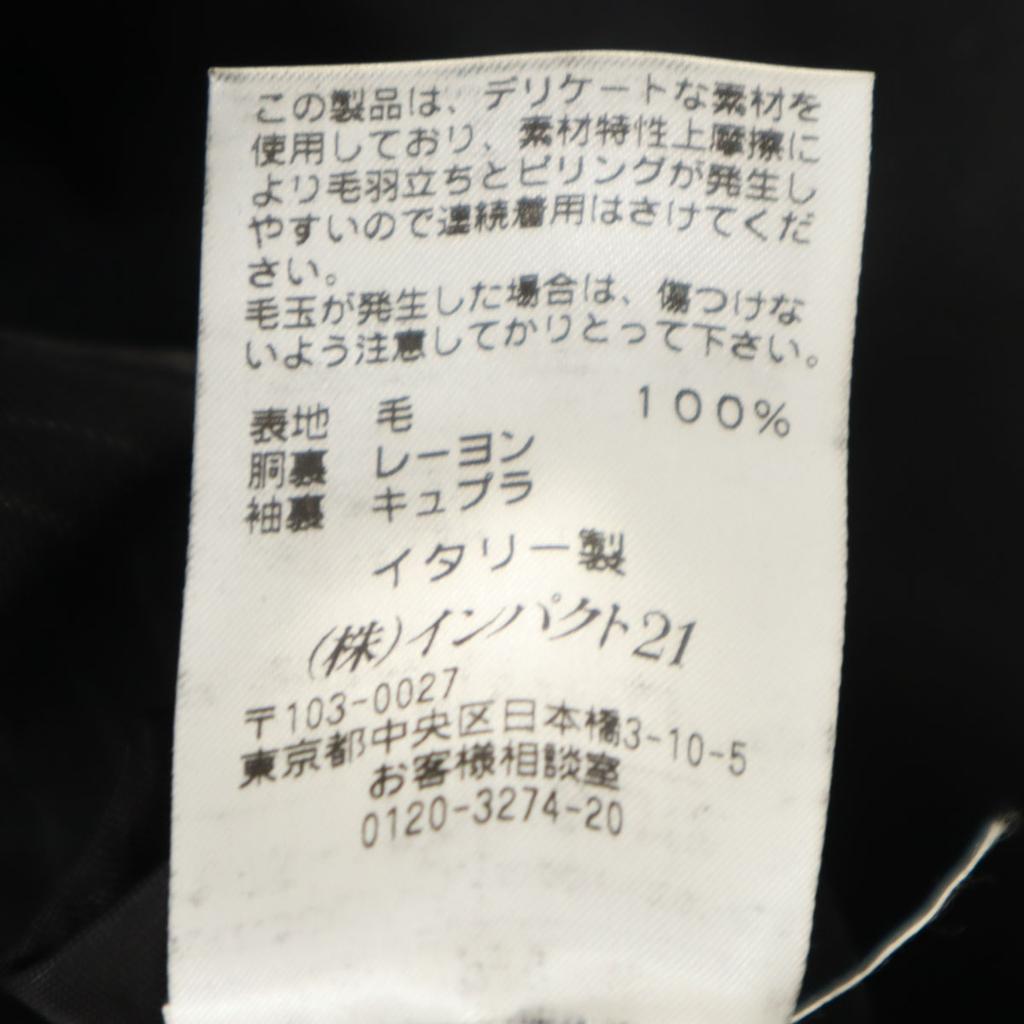 この製品は、デリケートな素材を
使用しており、素材特性上摩擦に
より毛羽立ちとピリングが発生し
やすいので連続着用はさけてくだ
さい。
毛玉が発生した場合は、傷つけな
いよう注意してかりとって下さい。
表地 毛 100%
胴裏 レーヨン
袖裏 キュプラ
イタリー製
(株)インパクト21
〒103-0027
東京都中央区日本橋3-10-5
お客様相談室
0120-3274-20